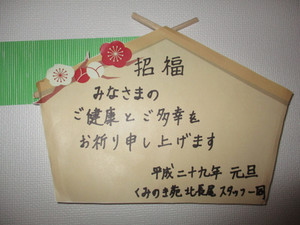 招福
みなさまの
ご健康とご多幸を
お祈り申し上げます
平成二十九年 元旦
くみのき苑 北長尾 スタッフ一同